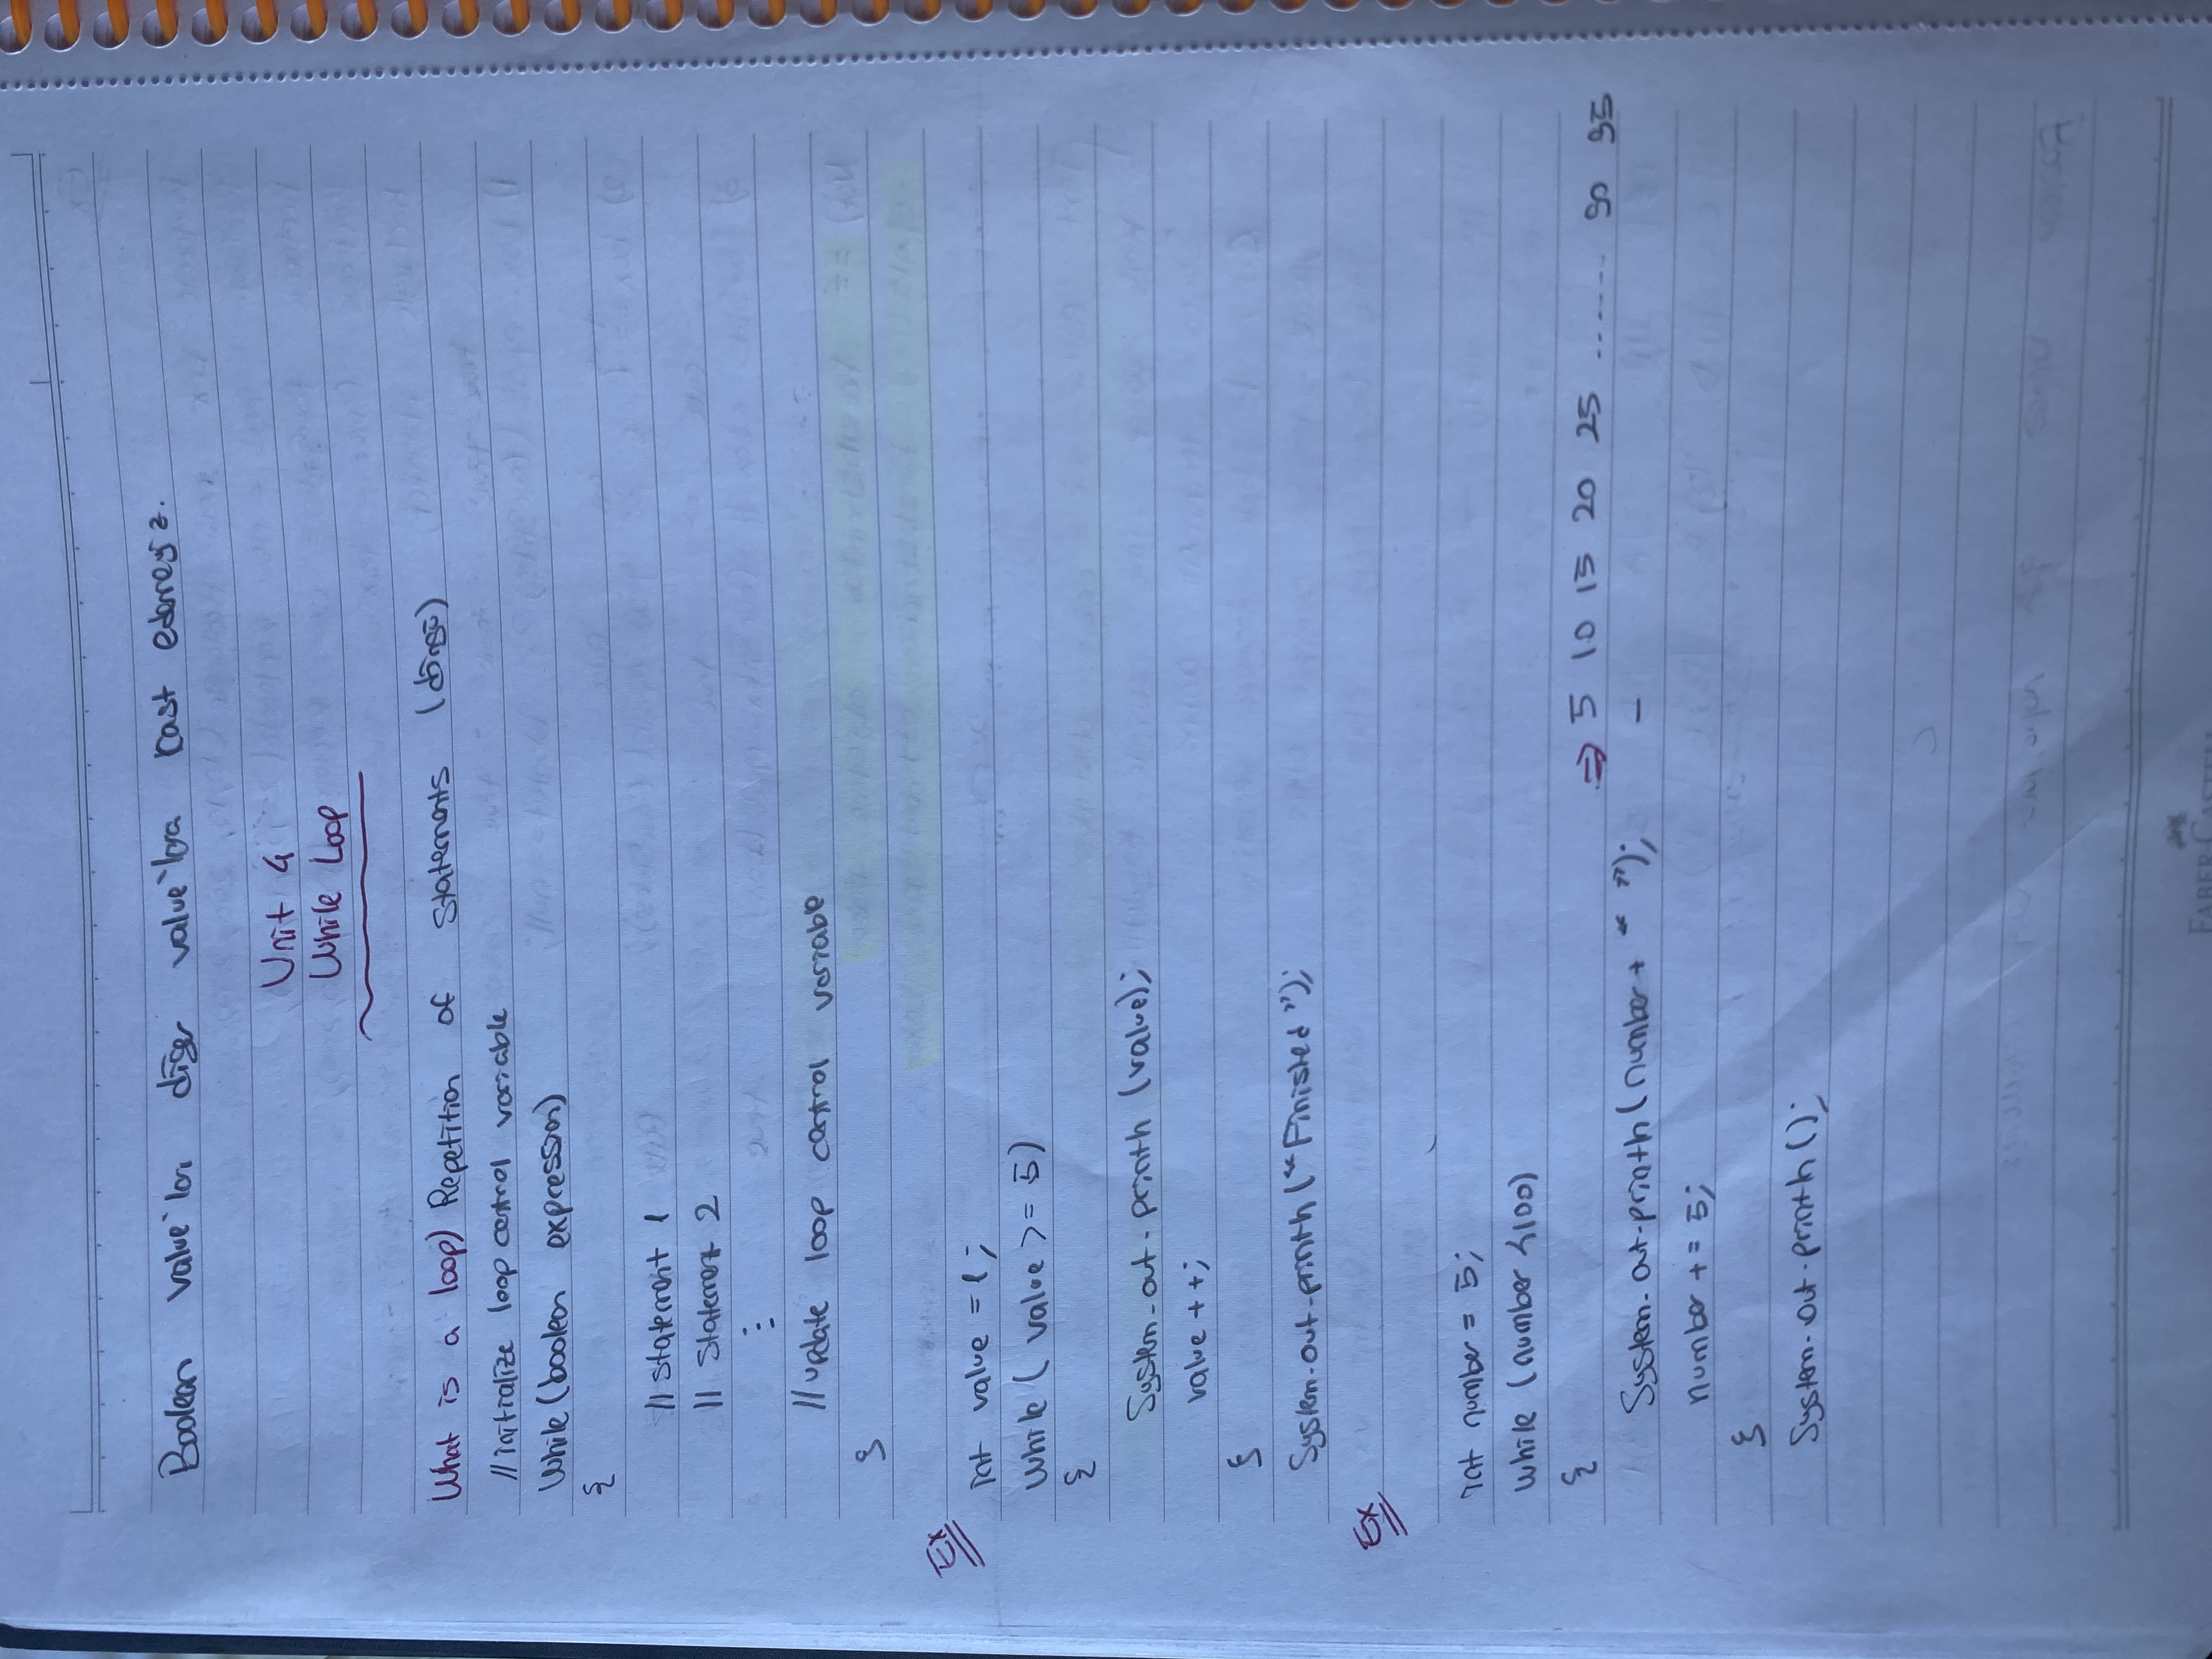 Boolean value'lar diğer value'lara cast edemeyiz.
Unit 4
While Loop
What is a loop) Repetition of statements (döngü)
//initialize loop control variable
While (boolean expression)
{
// statement 1
// Statement 2
⋮
//update loop control variable
}
Ex
int value = 1;
while ( value >= 5)
{
System.out.println (value);
value ++;
}
System.out.println ("Finished");
Ex
int number = 5;
while (number <100)
{
⇒ 5 10 15 20 25 ....... 90 95
System.out.println (number + " ");
–
number += 5;
}
System.out.println ();
FABER-CASTELL